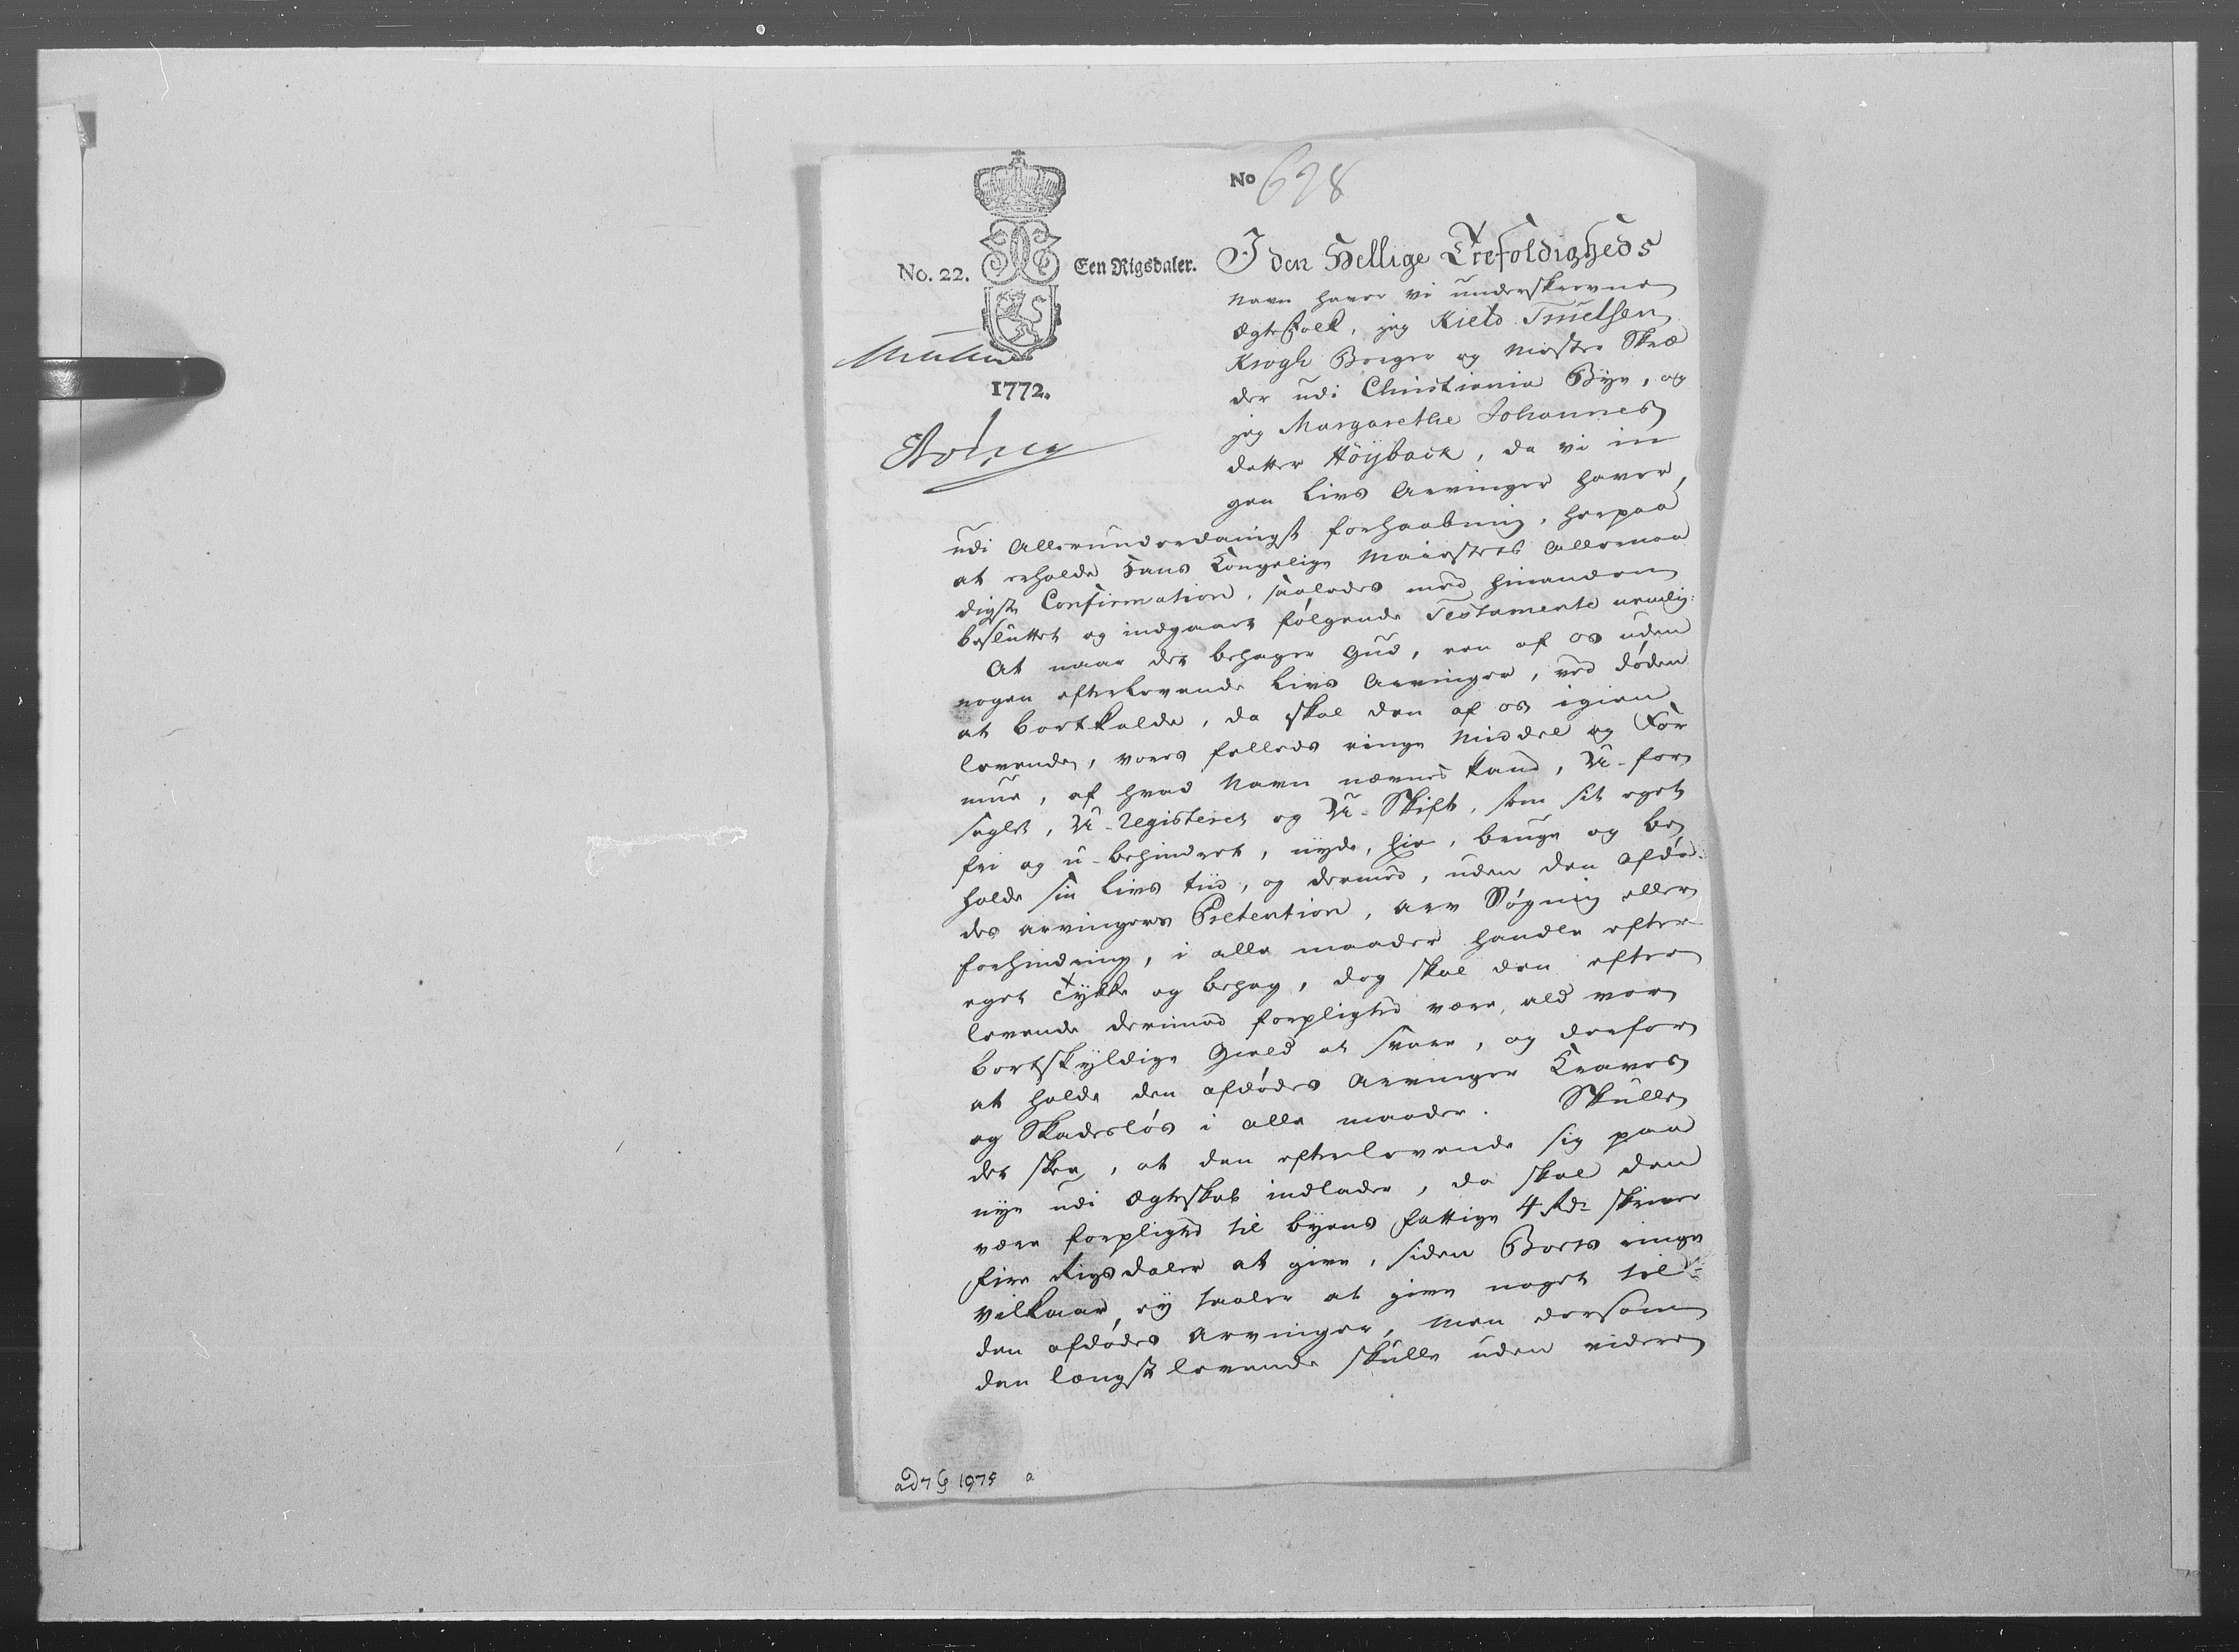 No 628
No. 22. Een Rigsdaler.
1772.
I den Hellige Trefoldigheds
Navn haver vi underskrevne
Ægtefolk, jeg Kield Truelsen
Krogh Borger og Mester Skræ
der udi Christiania Bye, og
jeg Margarethe Johannes
datter Höyback, da vi in
gen Livs Arvinger haver,
udi Allerunderdanigst forhaabning, herpaa
at erholde Hans Kongelige Maiestets Allernaa
digste Confirmation, saaledes med hinanden
besluttet og indgaaet følgende Testamente nemlig:
At naar det behager Gud, een af os uden
nogen efterlevende Livs Arvinger, ved døden
at bortkalde, da skal den af os igien
levende, vores fælleds ringe Middel og For
mue, af hvad Navn nævnes kand, U-for
seglet, U-Registeret og U-Skift, som sit eget
frie og u-behindret, nyde, eie, bruge og be
holde sin Livs tiid, og dermed, uden den afdø-
des arvingers Pretention, arv Søgning eller
forhindring, i alle maader handle efter
eget Tykke og behag, dog skal den efter
levende derimod forpligted være, ald vor
bortskyldige Gield at svare, og derfor
at holde den afdødes Arvinger Kravs
og Skadesløs i alle maader. Skulle
det skee, at den efterlevende sig paa
nye udi Ægteskab indlader, da skal den
være forpligted til byens fattige 4 Rdr skriver
fire Rigsdaler at give, siden Vores ringe
Vilkaar ey taaler at give noget til
den afdødes Arvinger, Men dersom
den længst levende skulle uden videre
ad 7 G 1975 a